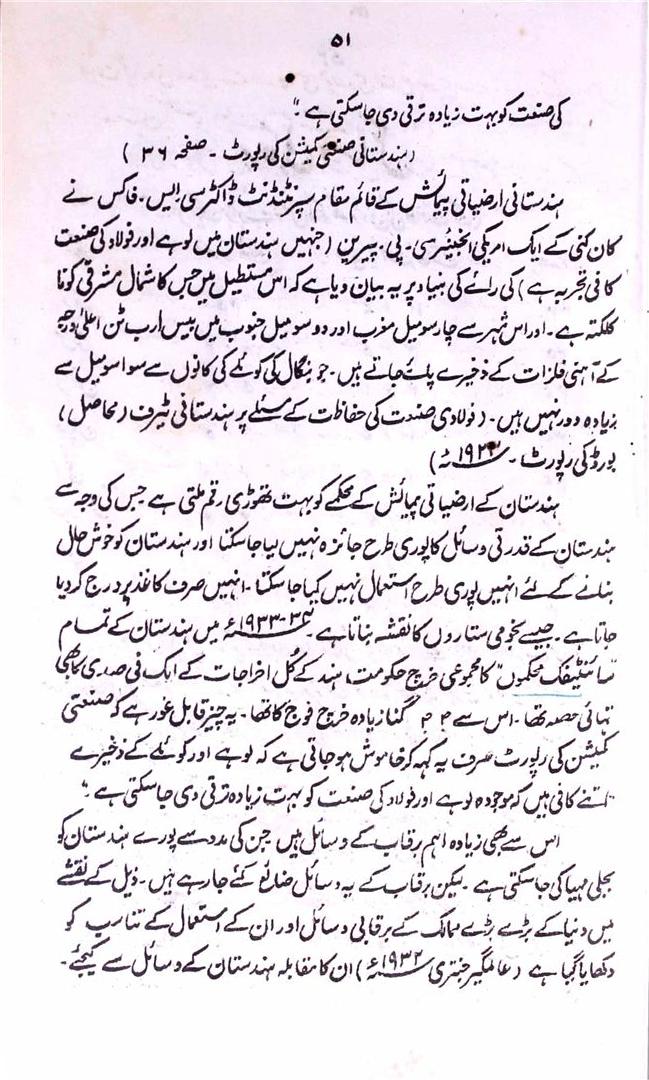 ۵۱
کی صنعت کو بہت زیادہ ترقی دی جا سکتی ہے۔"
(ہندستانی صنعتی کمیشن کی رپورٹ۔ صفحہ ۳۶)
ہندستانی ارضیاتی پیمائش کے قائم مقام سپرنٹنڈنٹ ڈاکٹر سی ایس۔ فاکس نے
کان کنی کے ایک امریکی انجینئر سی۔ پی۔ پیرین (جنہیں ہندستان میں لوہے اور فولاد کی صنعت
کا فی تجربہ ہے) کی رائے کی بنیاد پر یہ بیان دیا ہے کہ اس مستطیل میں جس کا شمال مشرقی کونا
کلکتہ ہے۔ اور اس شہر سے چار سو میل مغرب اور دو سو میل جنوب میں بیس ارب ٹن اعلیٰ درجہ
کے آہنی فلزات کے ذخیرے پائے جاتے ہیں۔ جو بنگال کی کوئلے کی کانوں سے سوا سو میل سے
زیادہ دور نہیں ہیں۔ (فولادی صنعت کی حفاظت کے مسئلے پر ہندستانی ٹیرف (محاصل)
بورڈ کی رپورٹ۔ ۱۹۲۴ء)
ہندستان کے ارضیاتی پیمائش کے محکمے کو بہت تھوڑی رقم ملتی ہے جس کی وجہ سے
ہندستان کے قدرتی وسائل کا پوری طرح جائزہ نہیں لیا جا سکتا اور ہندستان کو خوش حال
بنانے کے لئے انہیں پوری طرح استعمال نہیں کیا جا سکتا۔ انہیں صرف کاغذ پر درج کر دیا
جاتا ہے۔ جیسے نجومی ستاروں کا نقشہ بناتا ہے۔ ۳۴-۱۹۳۳ء میں ہندستان کے تمام
"سائنٹیفک محکموں" کا مجموعی خرچ حکومت ہند کے کُل اخراجات کے ایک فی صدی کا بھی
تہائی حصہ تھا۔ اس سے ۴۴ گنا زیادہ خرچ فوج کا تھا۔ یہ چیز قابل غور ہے کہ صنعتی
کمیشن کی رپورٹ صرف یہ کہہ کر خاموش ہو جاتی ہے کہ لوہے اور کوئلے کے ذخیرے
"اتنے کافی ہیں کہ موجودہ لوہے اور فولاد کی صنعت کو بہت زیادہ ترقی دی جا سکتی ہے۔"
اس سے بھی زیادہ اہم برقاب کے وسائل ہیں جن کی مدد سے پورے ہندستان کو
بجلی مہیا کی جا سکتی ہے۔ لیکن برقاب کے یہ وسائل ضائع کئے جا رہے ہیں۔ ذیل کے نقشے
میں دنیا کے بڑے بڑے ممالک کے برقابی وسائل اور ان کے استعمال کے تناسب کو
دکھایا گیا ہے (عالمگیر جنتری ۱۹۳۲ء) ان کا مقابلہ ہندستان کے وسائل سے کیجئے۔